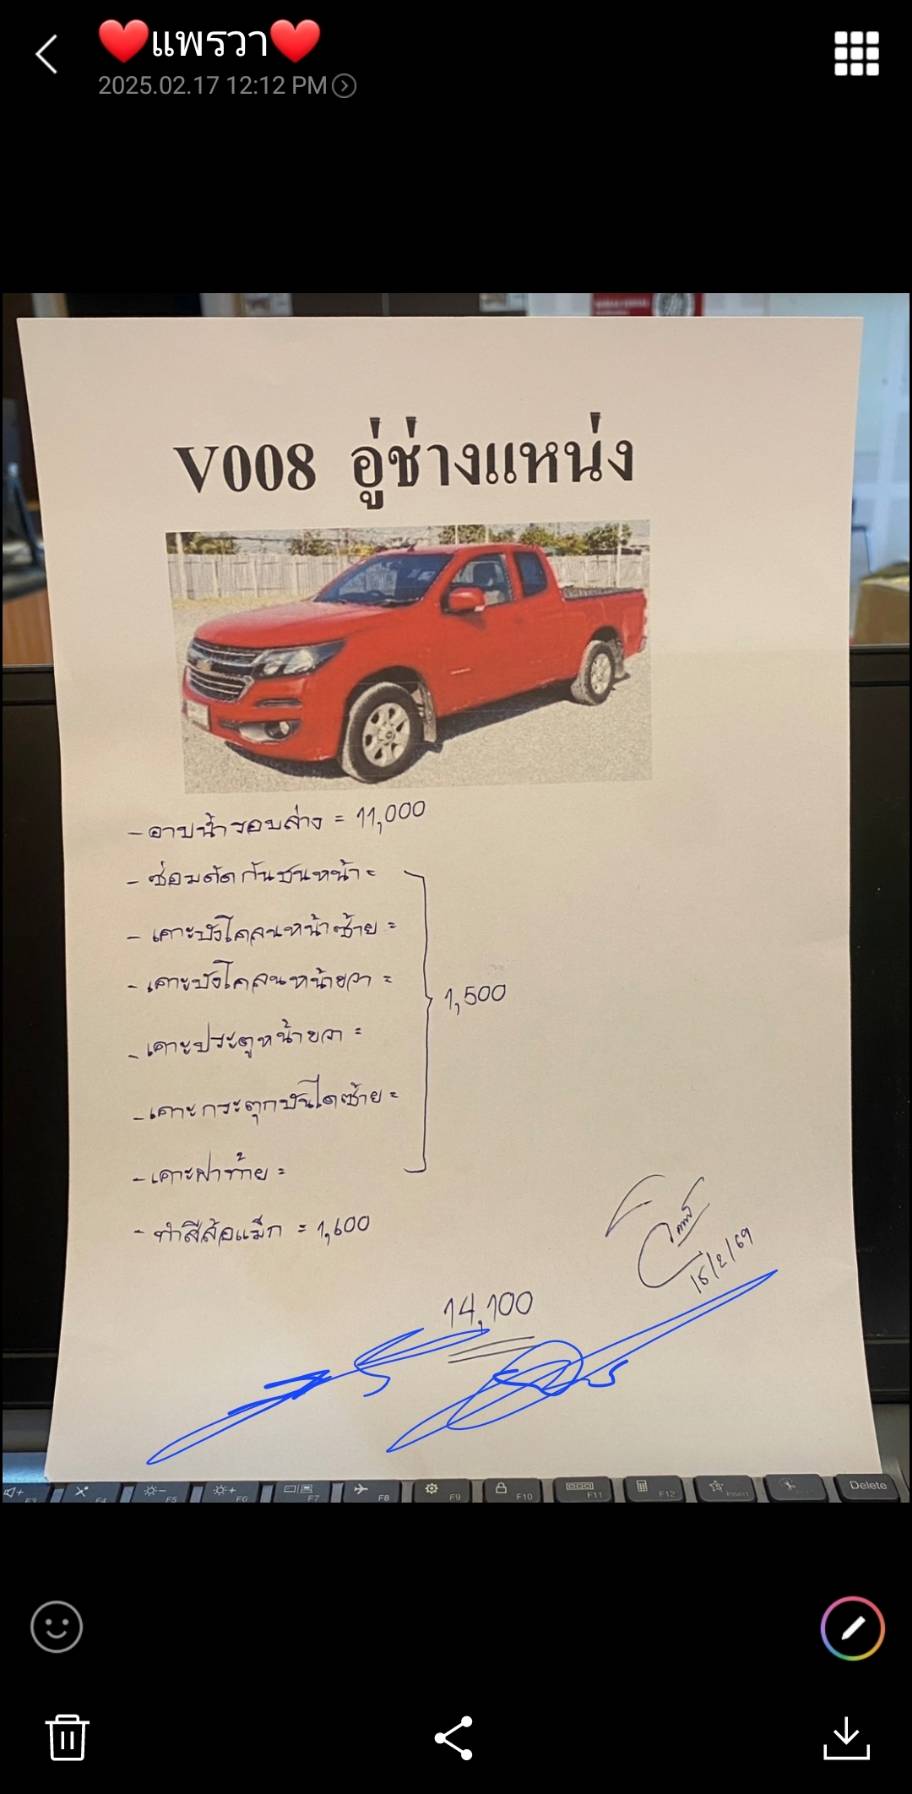 ❤️แพรวา❤️
2025.02.17 12:12 PM
V008 อู่ช่างแหน่ง
- อาบน้ำรอบล่าง = 11,000
- ซ่อมดัดกันชนหน้า =
- เคาะบังโคลนหน้าซ้าย =
- เคาะบังโคลนหน้าขวา =
1,500
- เคาะประตูหน้าขวา =
- เคาะกระตุกบันไดซ้าย =
- เคาะฝาท้าย =
- ทำสีล้อแม็ก = 1,600
14,100
F5
F6
F7
F8
F9
F10
F11
F12
Delete